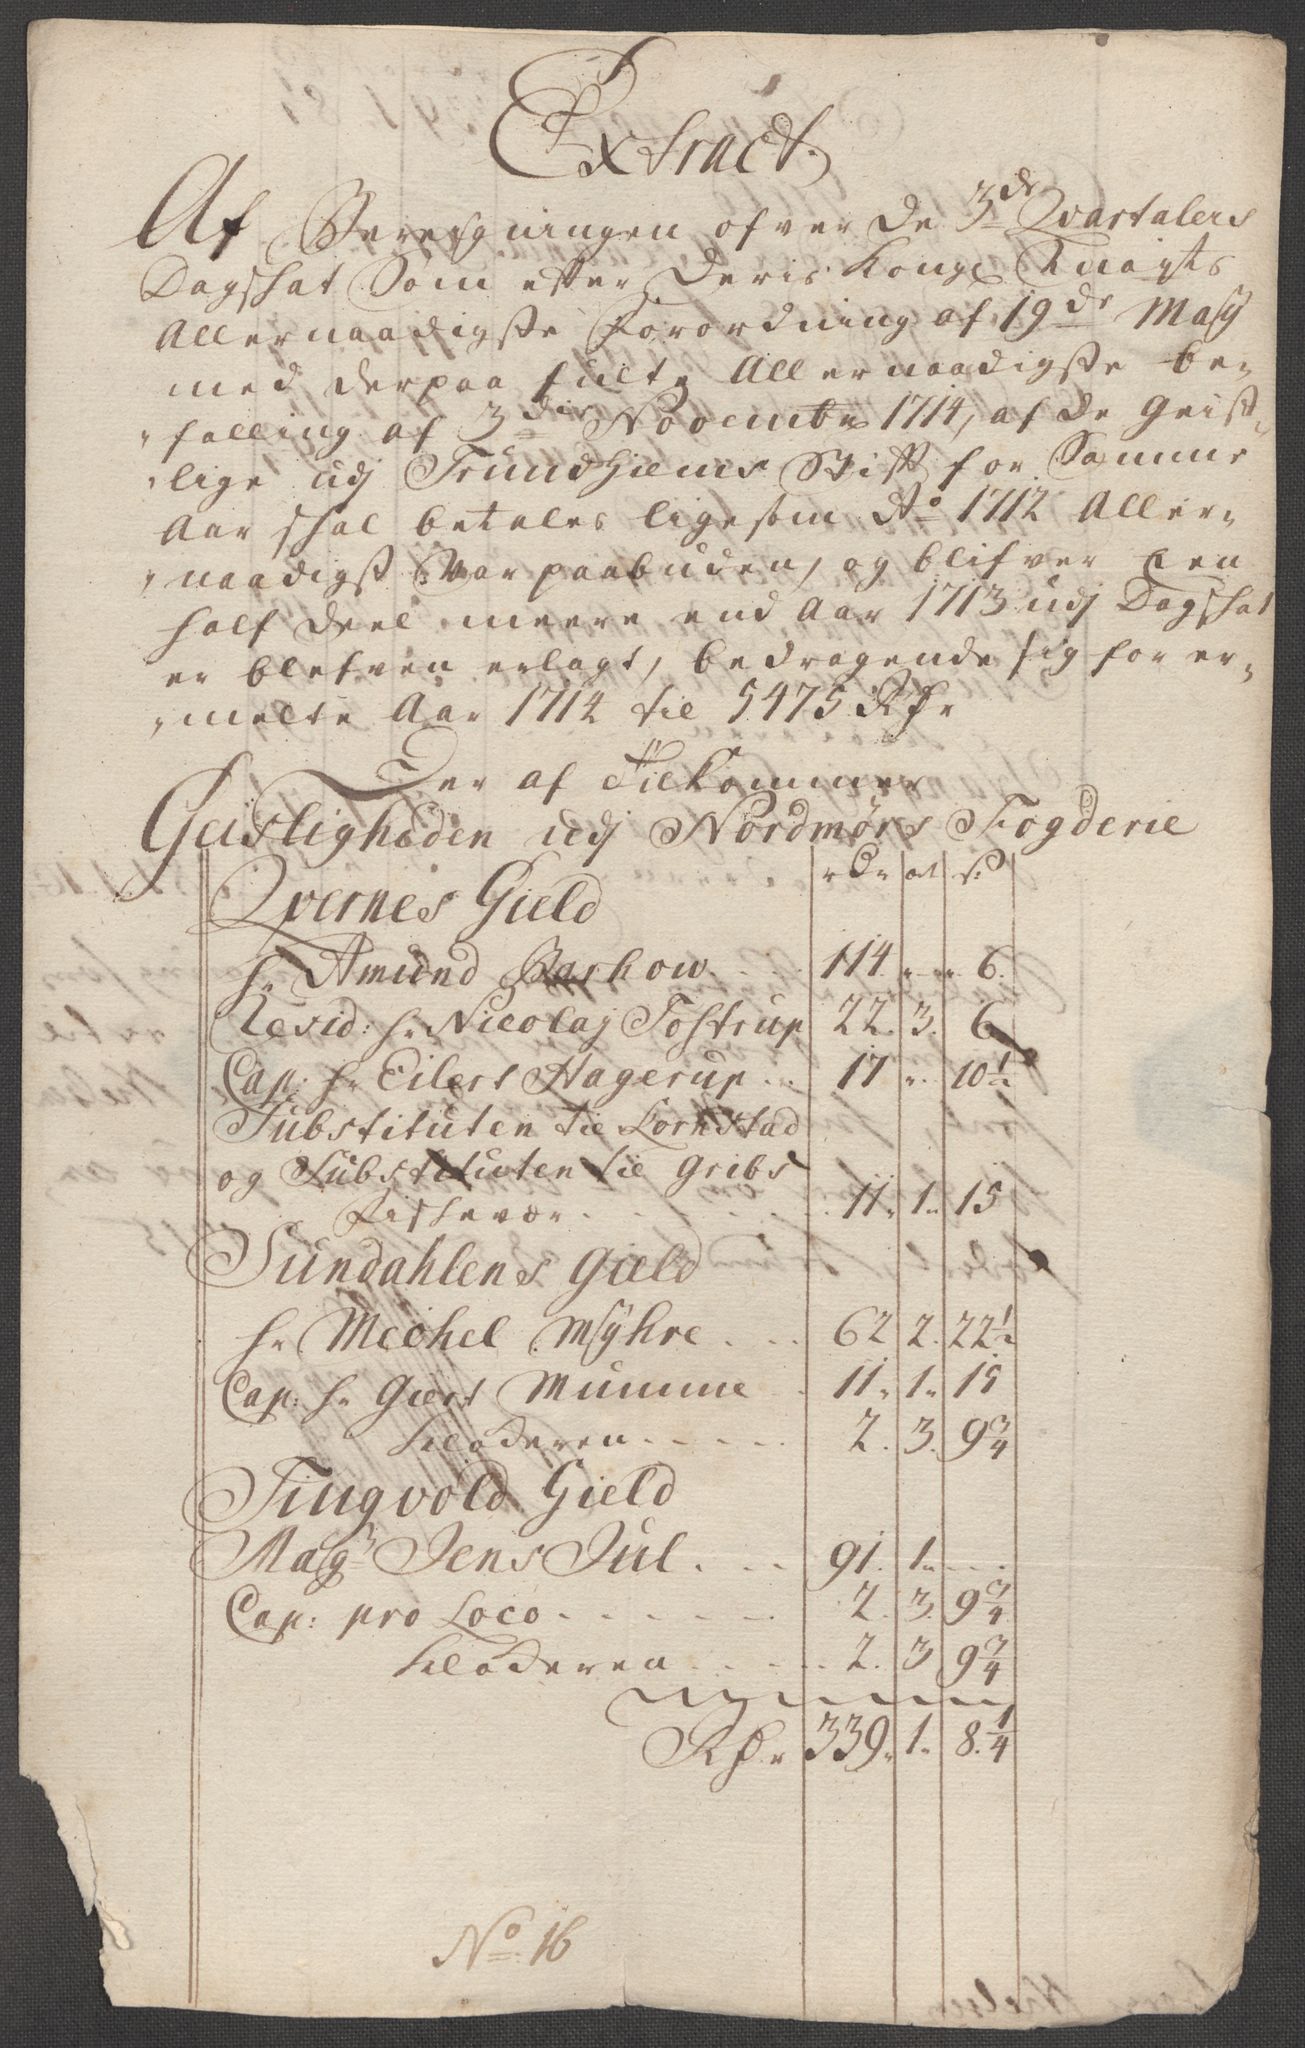 Extract
Af Beregningen ofver de 3de Qvartalers
Dagschat Som efter Deris Kongl Mayts
Allernaadigste Forordning af 19de Maÿ
med derpaa fulte Allernaadigste be„
„falling af 3die Novembr 1714, af de Geist„
„lige udj Trundhiems Stift for Samme
Aar schal betales ligesom Ao 1712 Aller„
„naadigst Var paabuden, og blifver een
half deel meere end Aar 1713 udj Dagschat
er blefven erlagt, bedragende sig for er„
„melte Aar 1714 til 5475 Rdr
Der af Tilkommer
Geistligheden udj Nordmørs Fogderie
rdr ort s
Qvernes Gield
hr Amund Barhow 114 „ „ 6
Resid: hr Nicolaj Tostrup 22. 3. 6
Cap: hr Eilert Hagerup 17 „ 10½
Substituten til Kornstad
og Substituten til Gribs
Fischevær 11„ 1„ 15
Sundahlens Gield
hr Mechel Mÿhre 62 2. 22½
Cap: hr Giert Mumme 11„ 1„ 15
Klocheren 2. 3. 9¾
Tingvold Gield
Magr Jens Jul 91. 1„
Cap: pro Loco 2. 3. 9¾
Klocheren 2. 3 9¾
Rdr 339„ 1„ 8¼
No 16